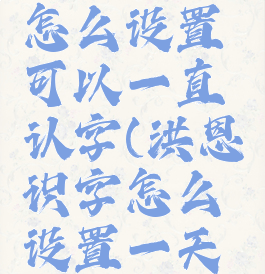 怎么设置
可以一直
认字(洪恩
识字怎么
设置一天